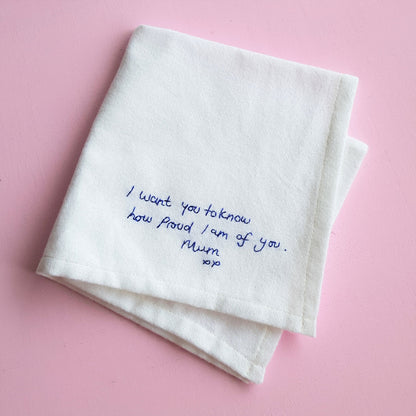 I want you to know
how proud I am of you.
Mum
xx